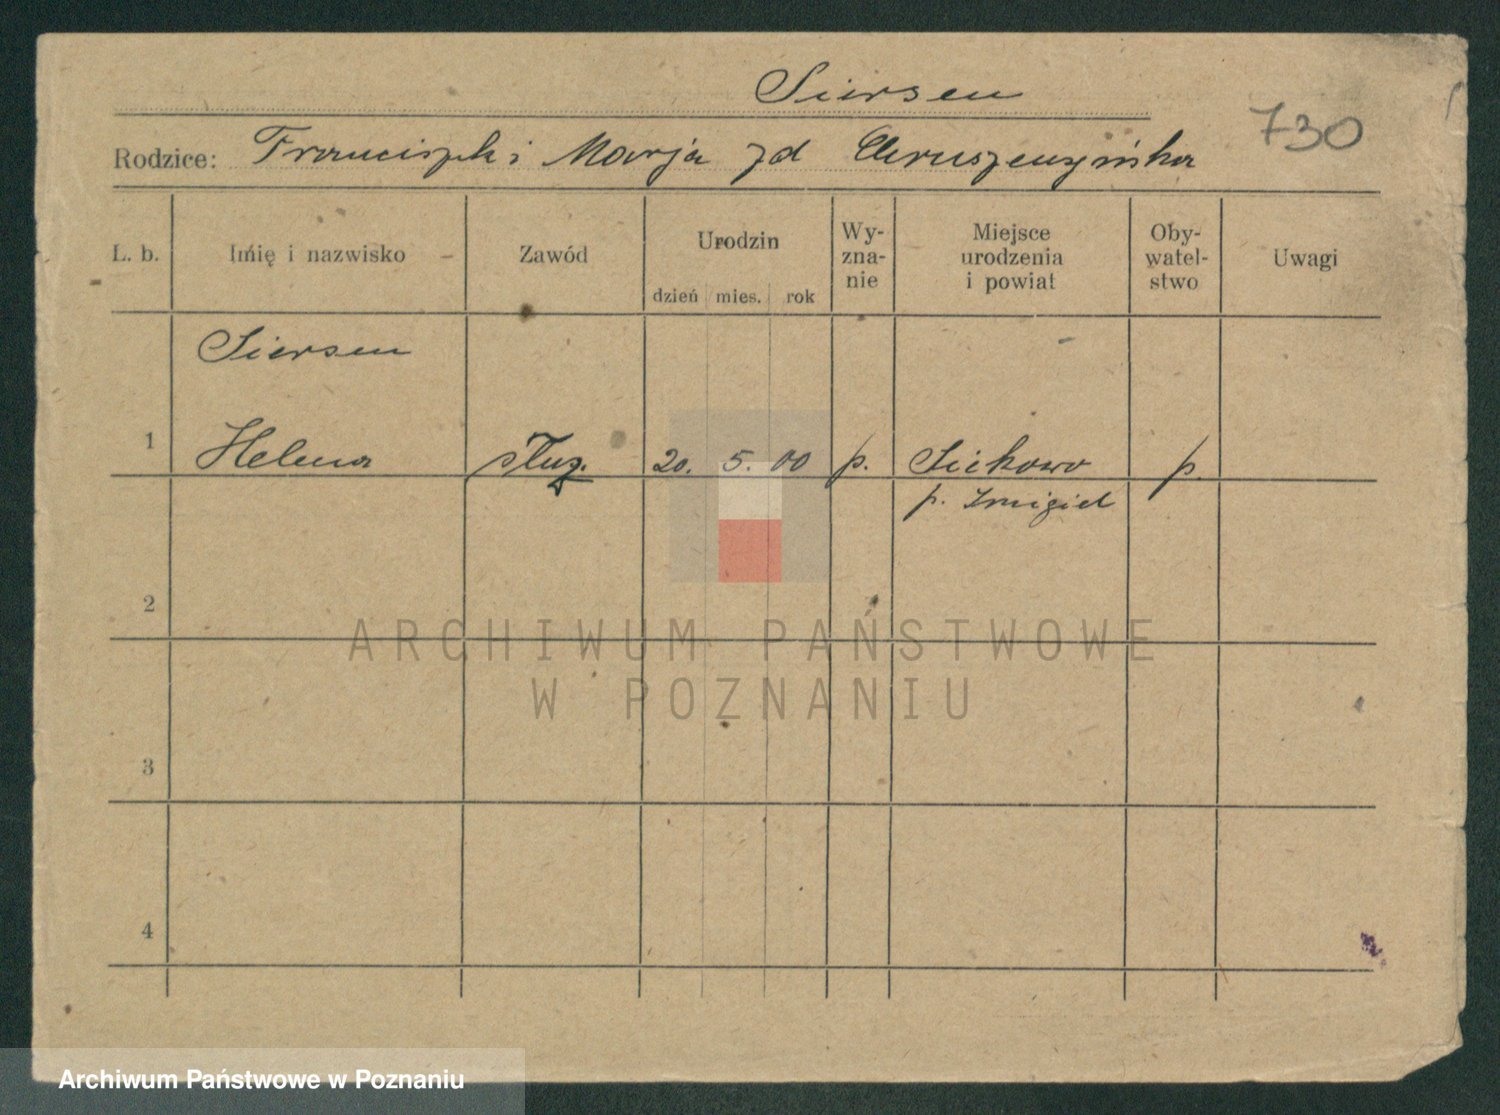 Siersen
730
Rodzice: Franciszk i Marja zd
L. b. Imię i nazwisko Zawód Urodzin dzień mies. rok Wy-zna-nie Miejsce urodzenia i powiat Oby-watel-stwo Uwagi
Siersen
1 Helena służ. 20. 5. 00 p. Siekowo p.
p. Śmigiel
2
ARCHIWUM PAŃSTWOWE
W POZNANIU
3
4
Archiwum Państwowe w Poznaniu